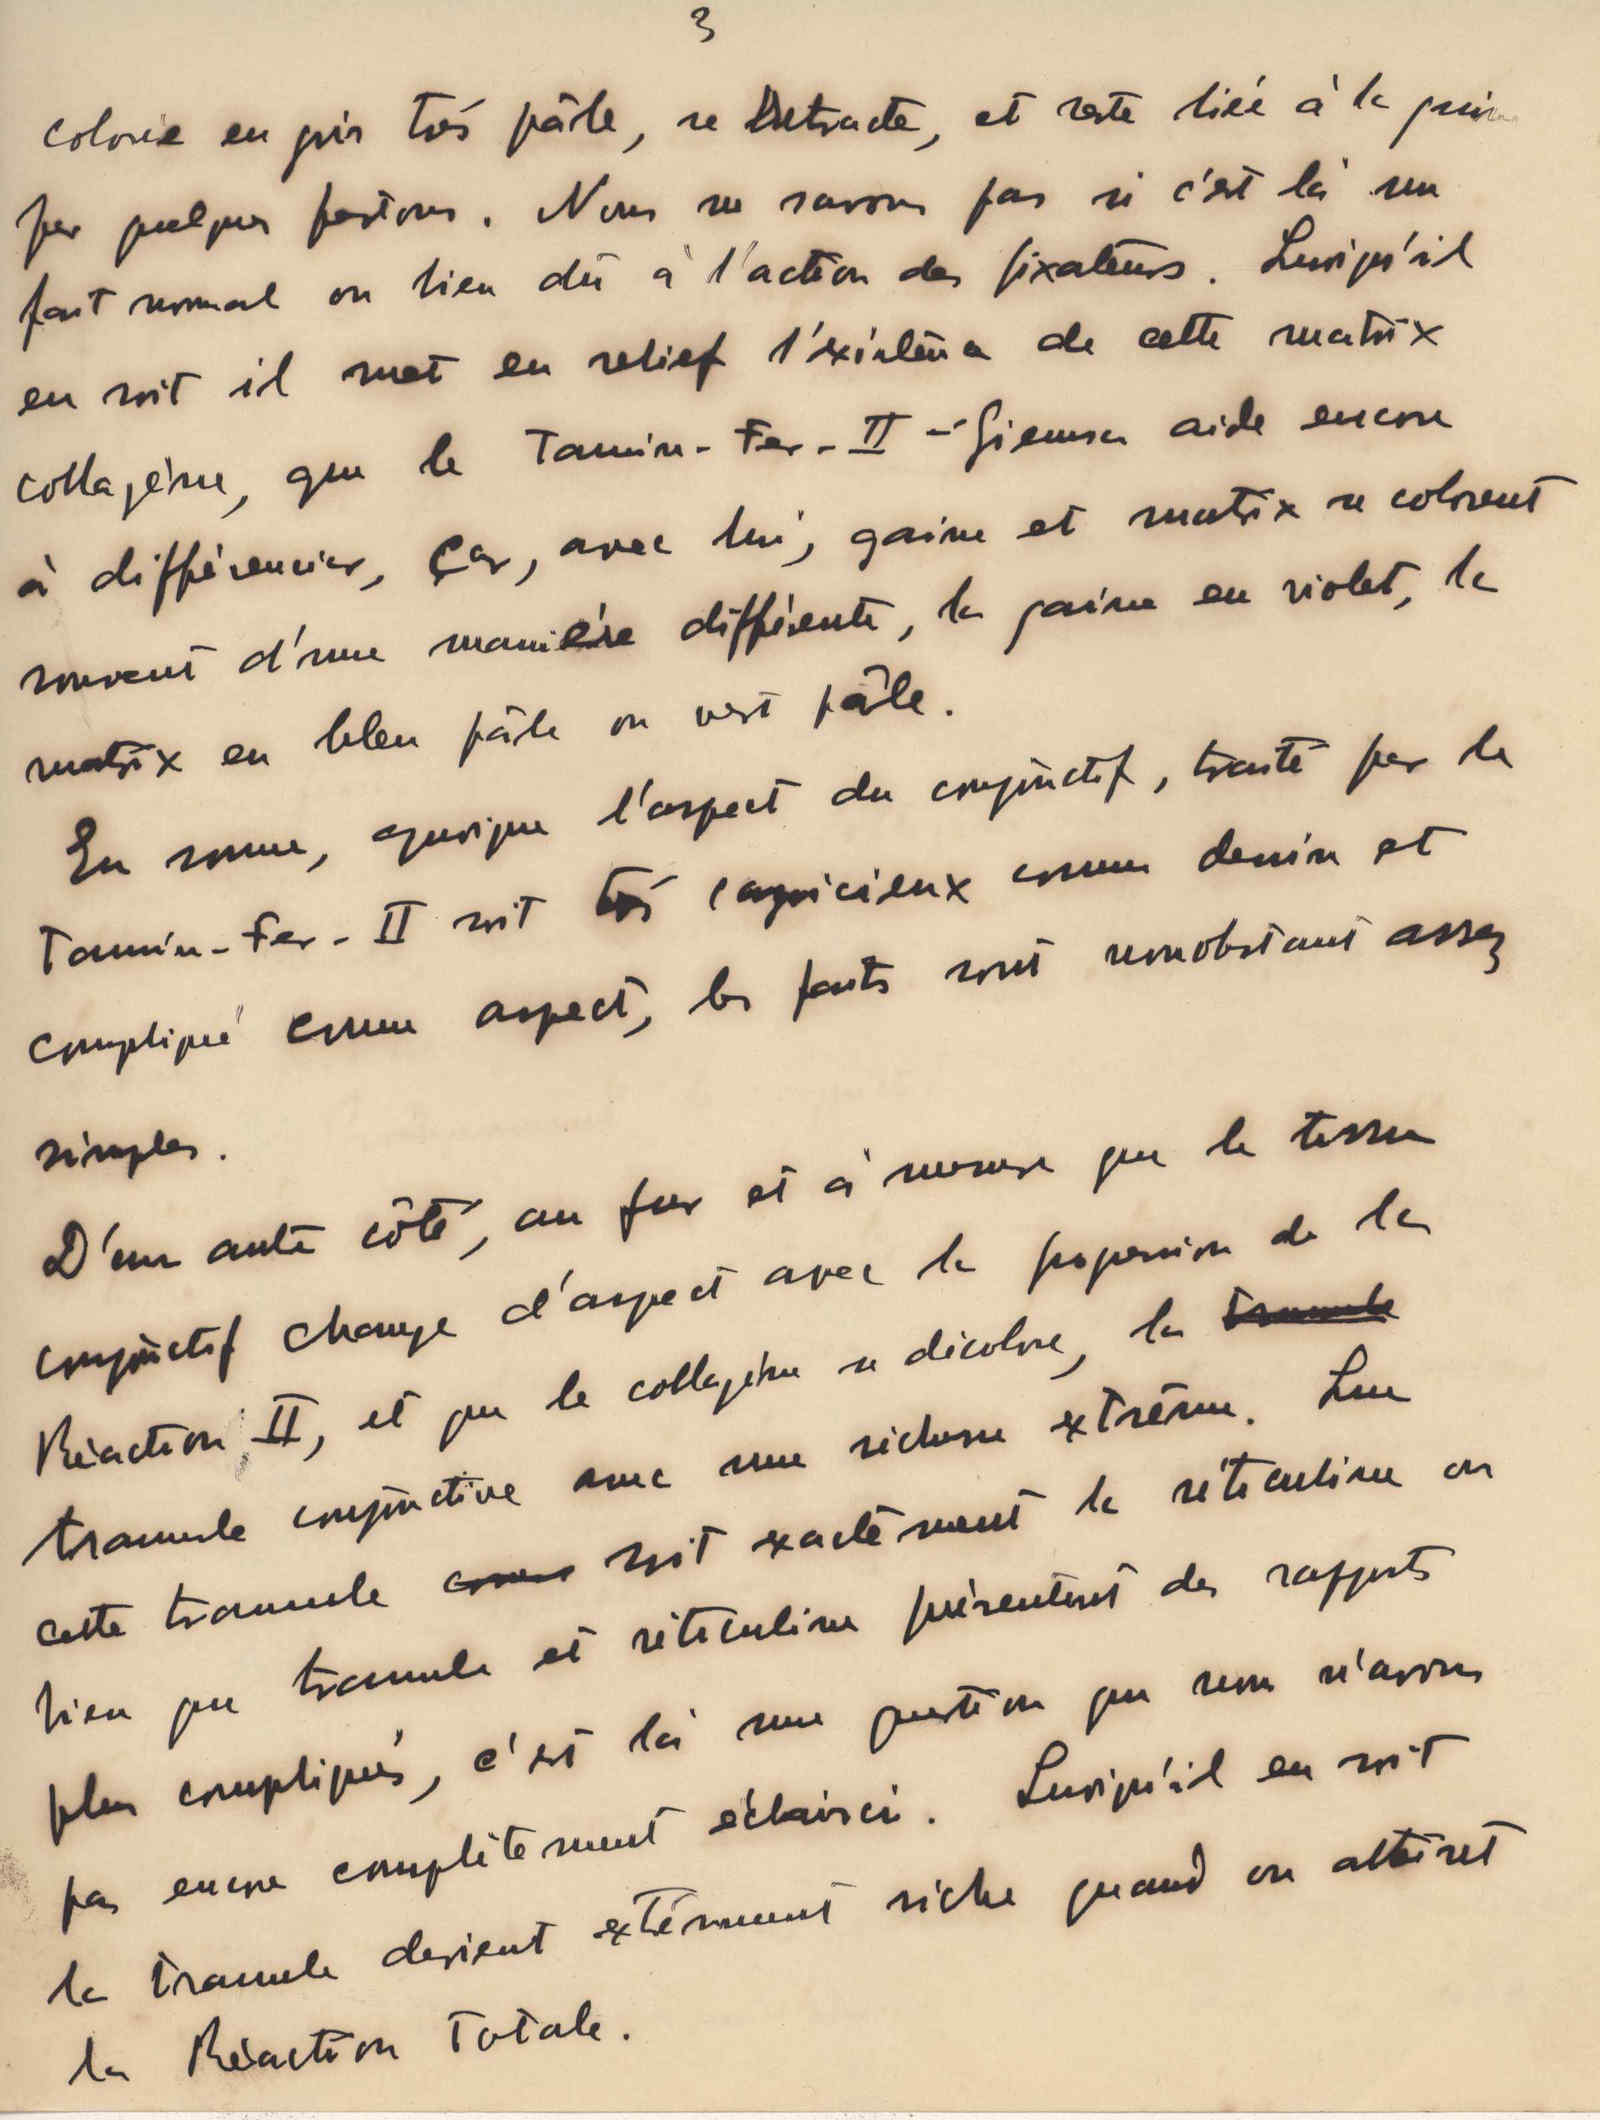 3
colorie en gris très pâle, se retracte, et reste liée à la gaine
par quelques festons. Nous ne savons pas si c'est là un
fait normal ou bien dû à l'action des fixateurs. Quoiqu'il
en soit il met en relief l'existence de cette matrix
collagène, que le Tannin-Fer-II-Giemsa aide encore
à différencier, Car, avec lui, gaine et matrix se colorent
souvent d'une manière différente, la gaine en violet, la
matrix en bleu pâle ou vert pâle.
En somme, quoique l'aspect du conjinctif, traité par le
Tannin-Fer-II soit très capricieux comme dessin et
compliqué comme aspect, les faits sont nonobstant assez
simples.
D'un autre côté, au fur et à mesure que le tissu
conjinctif change d'aspect avec la progression de la
Réaction II, et que le collagène se décolore, la tramule
tramule conjinctive avec une richesse extrême. Que
cette tramule comme soit exactement la réticuline ou
bien que tramule et réticuline présentent des rapports
plus compliqués, c'est là une question que nous n'avons
pas encore complètement éclairci. Quoiqu'il en soit
la tramule devient extémement riche quand on atteint
la Réaction Totale.